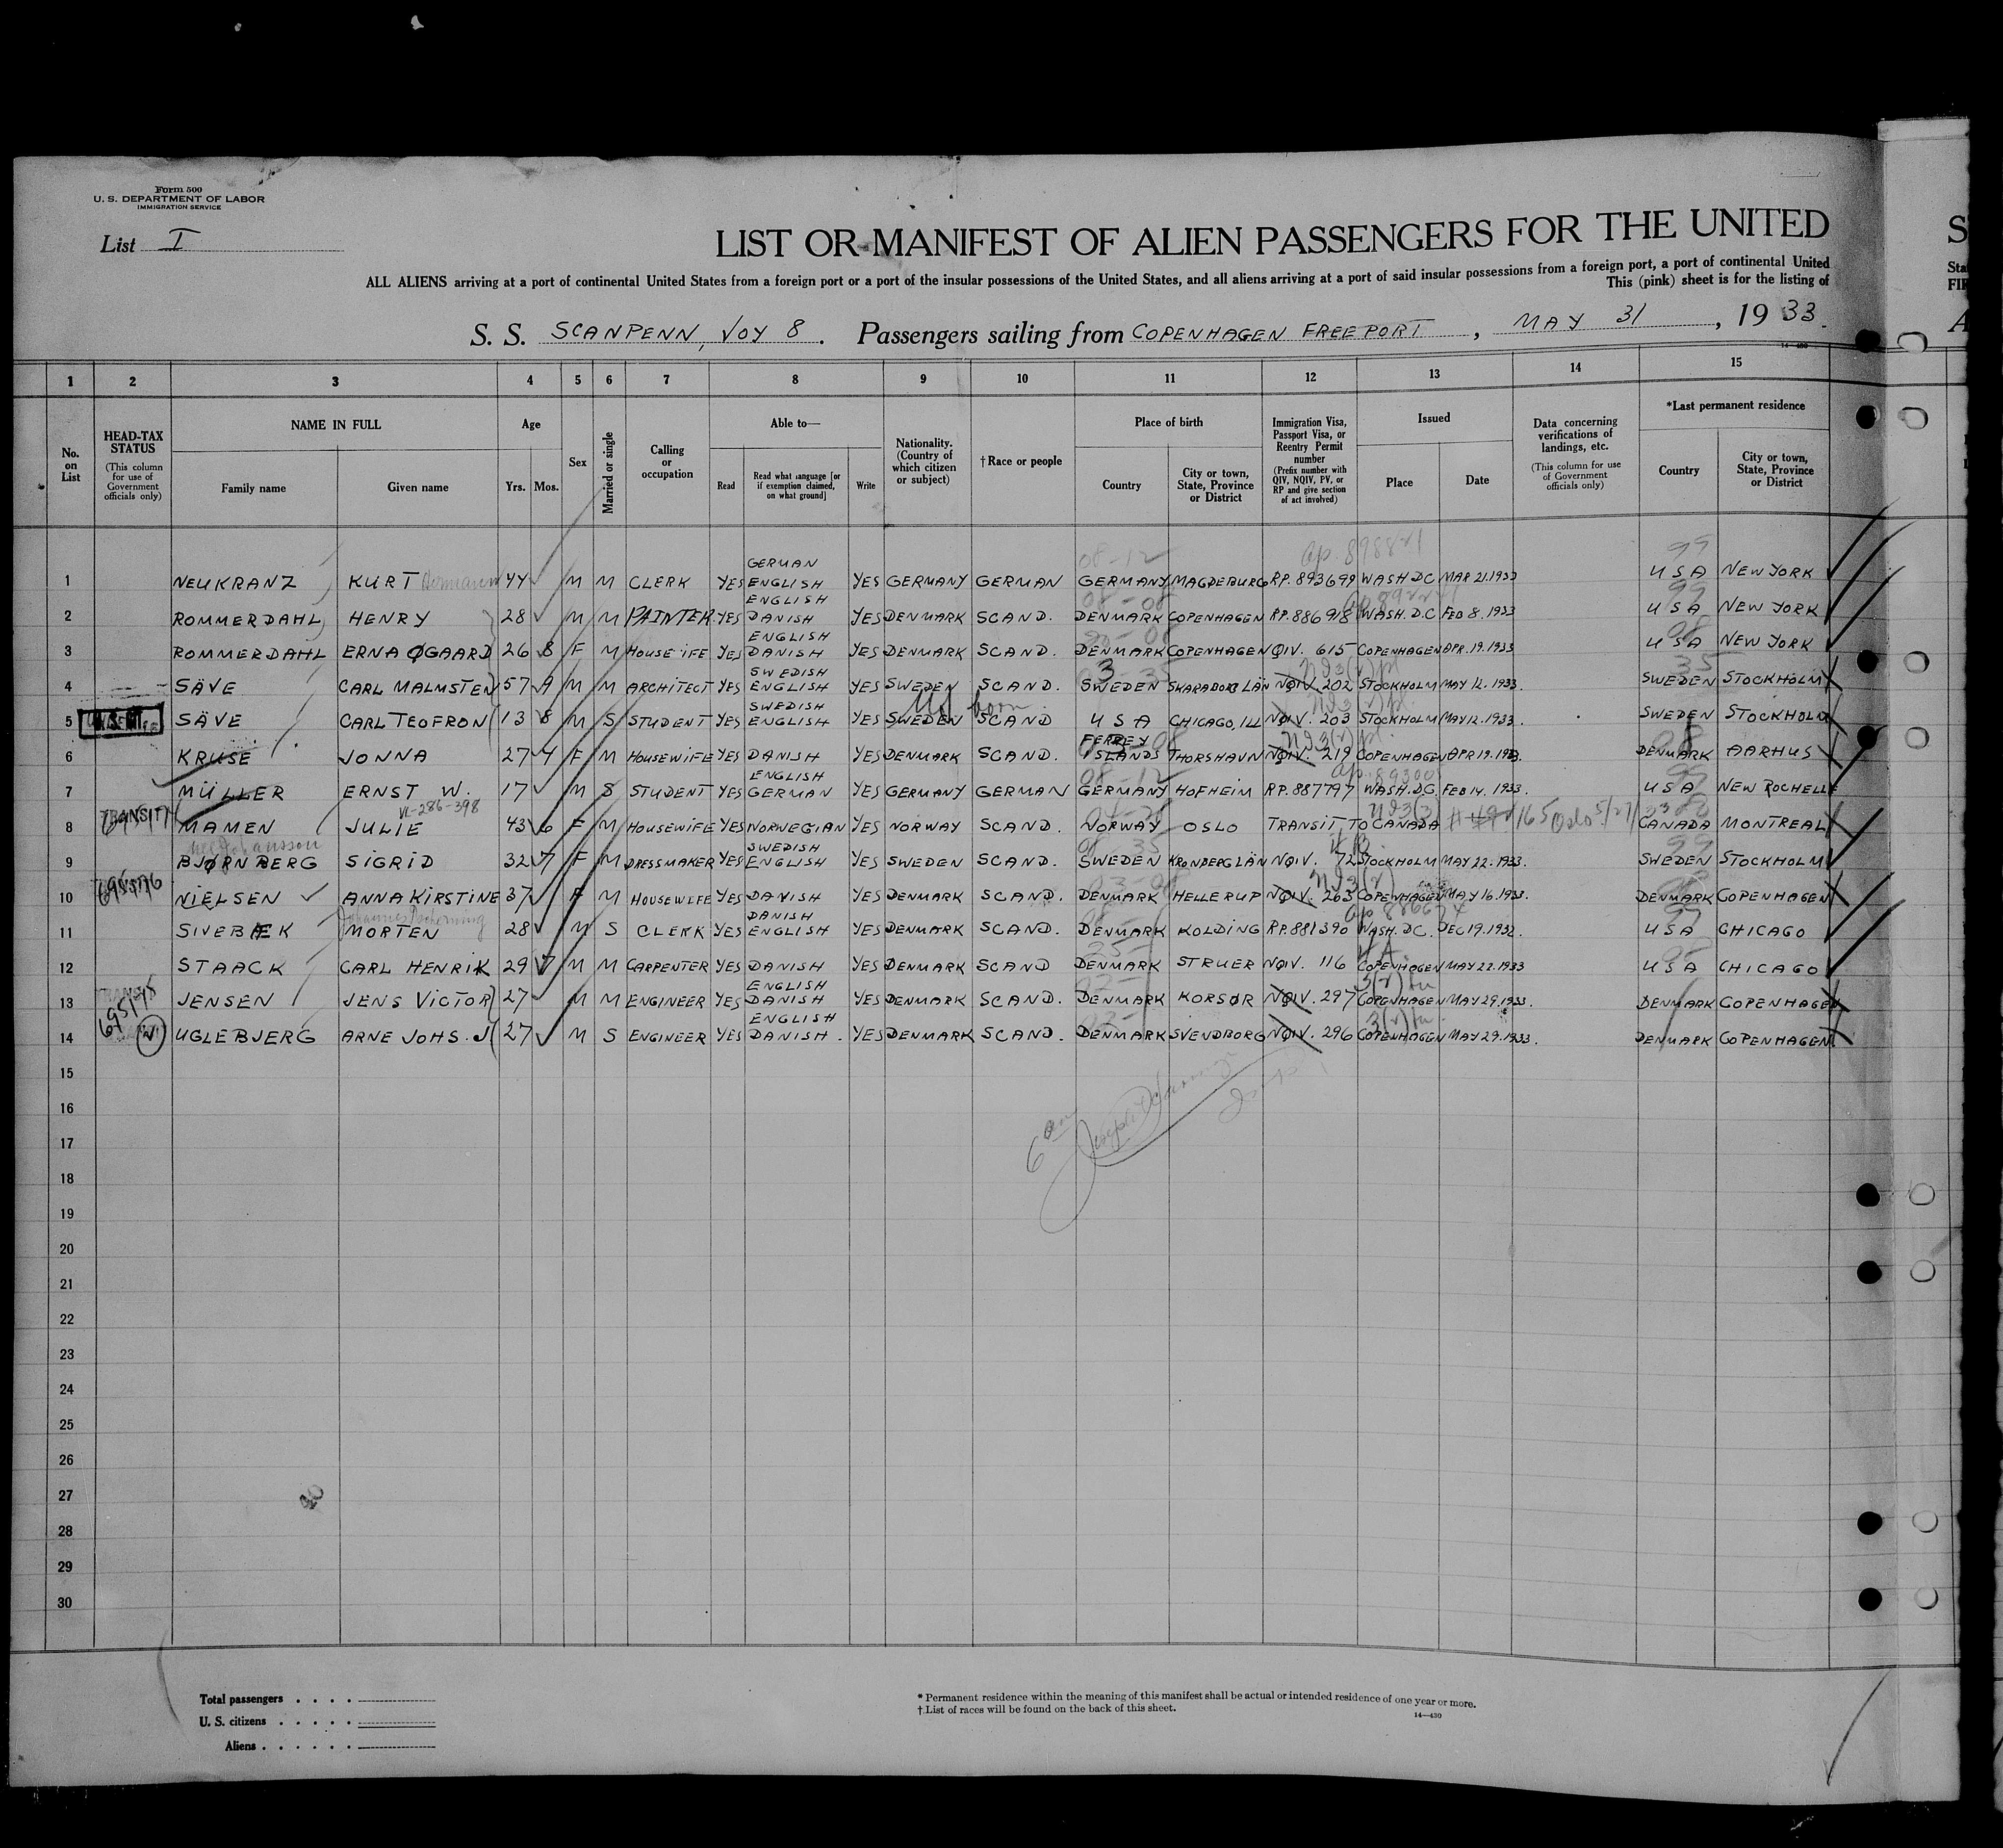 Form 500
U. S. DEPARTMENT OF LABOR
IMMIGRATION SERVICE
List I
LIST OR MANIFEST OF ALIEN PASSENGERS FOR THE UNITED
ALL ALIENS arriving at a port of continental United States from a foreign port or a port of the insular possessions of the United States, and all aliens arriving at a port of said insular possessions from a foreign port, a port of continental United
This (pink) sheet is for the listing of
S. S. SCANPENN, VOY 8. Passengers sailing from COPENHAGEN FREEPORT, MAY 31, 1933.
1 2 3 4 5 6 7 8 9 10 11 12 13 14 15
No. on List
HEAD-TAX STATUS (This column for use of Government officials only)
NAME IN FULL
Family name Given name
Age
Yrs. Mos.
Sex
Married or single
Calling or occupation
Able to—
Read Read what language [or if exemption claimed, on what ground] Write
Nationality. (Country of which citizen or subject)
† Race or people
Place of birth
Country City or town, State, Province or District
Immigration Visa, Passport Visa, or Reentry Permit number (Prefix number with QIV, NQIV, PV, or RP and give section of act involved)
Issued
Place Date
Data concerning verifications of landings, etc. (This column for use of Government officials only)
*Last permanent residence
Country City or town, State, Province or District
1 NEUKRANZ KURT Hermann 44 M M CLERK YES GERMAN ENGLISH YES GERMANY GERMAN GERMANY MAGDEBURG RP. 893699 WASH DC MAR 21.1933 USA NEW YORK
2 ROMMERDAHL HENRY 28 M M PAINTER YES ENGLISH DANISH YES DENMARK SCAND. DENMARK COPENHAGEN RP. 886918 WASH. D.C FEB 8.1933 USA NEW YORK
3 ROMMERDAHL ERNA ØGAARD 26 8 F M HOUSEWIFE YES ENGLISH DANISH YES DENMARK SCAND. DENMARK COPENHAGEN QIV. 615 COPENHAGEN APR.19.1933 USA NEW YORK
4 SÄVE CARL MALMSTEN 57 9 M M ARCHITECT YES SWEDISH ENGLISH YES SWEDEN SCAND. SWEDEN SKARABORG LÄN NQIV. 202 STOCKHOLM MAY 12.1933. SWEDEN STOCKHOLM
5 SÄVE CARL TEOFRON 13 8 M S STUDENT YES SWEDISH ENGLISH YES SWEDEN US born SCAND USA CHICAGO, ILL NQIV. 203 STOCKHOLM MAY 12.1933. SWEDEN STOCKHOLM
6 KRUSE JONNA 27 4 F M HOUSEWIFE YES DANISH YES DENMARK SCAND. FERREY ISLANDS THORSHAVN NQIV. 219 COPENHAGEN APR 19.1933. DENMARK AARHUS
7 MÜLLER ERNST W. 17 M S STUDENT YES ENGLISH GERMAN YES GERMANY GERMAN GERMANY HOFHEIM RP. 887797 WASH. DC. FEB 14. 1933. USA NEW ROCHELLE
VL-286-398
8 TRANSIT MAMEN JULIE 43 6 F M HOUSEWIFE YES NORWEGIAN YES NORWAY SCAND. NORWAY OSLO TRANSIT TO CANADA 165 Oslo 5/27/33 CANADA MONTREAL
9 BJØRNBERG SIGRID 32 7 F M DRESSMAKER YES SWEDISH ENGLISH YES SWEDEN SCAND. SWEDEN KRONOBERG LÄN NQIV. 72 STOCKHOLM MAY 22.1933. SWEDEN STOCKHOLM
10 NIELSEN ANNA KIRSTINE 37 F M HOUSEWIFE YES DANISH YES DENMARK SCAND. DENMARK HELLERUP NQIV. 263 COPENHAGEN MAY 16.1933. DENMARK COPENHAGEN
11 SIVEBÆK MORTEN 28 M S CLERK YES DANISH ENGLISH YES DENMARK SCAND. DENMARK KOLDING RP. 881390 WASH. DC. DEC 19.1932. USA CHICAGO
12 STAACK CARL HENRIK 29 7 M M CARPENTER YES DANISH YES DENMARK SCAND DENMARK STRUER NQIV. 116 COPENHAGEN MAY 22.1933 USA CHICAGO
13 JENSEN JENS VICTOR 27 M M ENGINEER YES ENGLISH DANISH YES DENMARK SCAND. DENMARK KORSØR NQIV. 297 COPENHAGEN MAY 29.1933. DENMARK COPENHAGEN
14 UGLEBJERG ARNE JOHS. J 27 M S ENGINEER YES ENGLISH DANISH. YES DENMARK SCAND. DENMARK SVENDBORG NQIV. 296 COPENHAGEN MAY 29.1933. DENMARK COPENHAGEN
15
16
17
18
19
20
21
22
23
24
25
26
27
28
29
30
Total passengers . . . .
U. S. citizens . . . . .
Aliens . . . . . .
* Permanent residence within the meaning of this manifest shall be actual or intended residence of one year or more.
† List of races will be found on the back of this sheet.
14—430